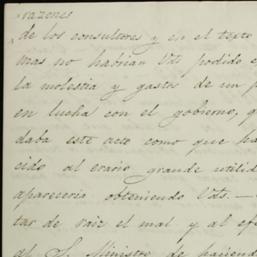 razones
de los consultores y en el texto
mas no habrian Vds podido e
la molestia y gastos de un p
en lucha con el gobierno, q
daba este acto como que ha
cido al erario grande utilid
apareceria obteniendo Vds. —
tar de raiz el mal y al efe
el S. Ministro de haciend